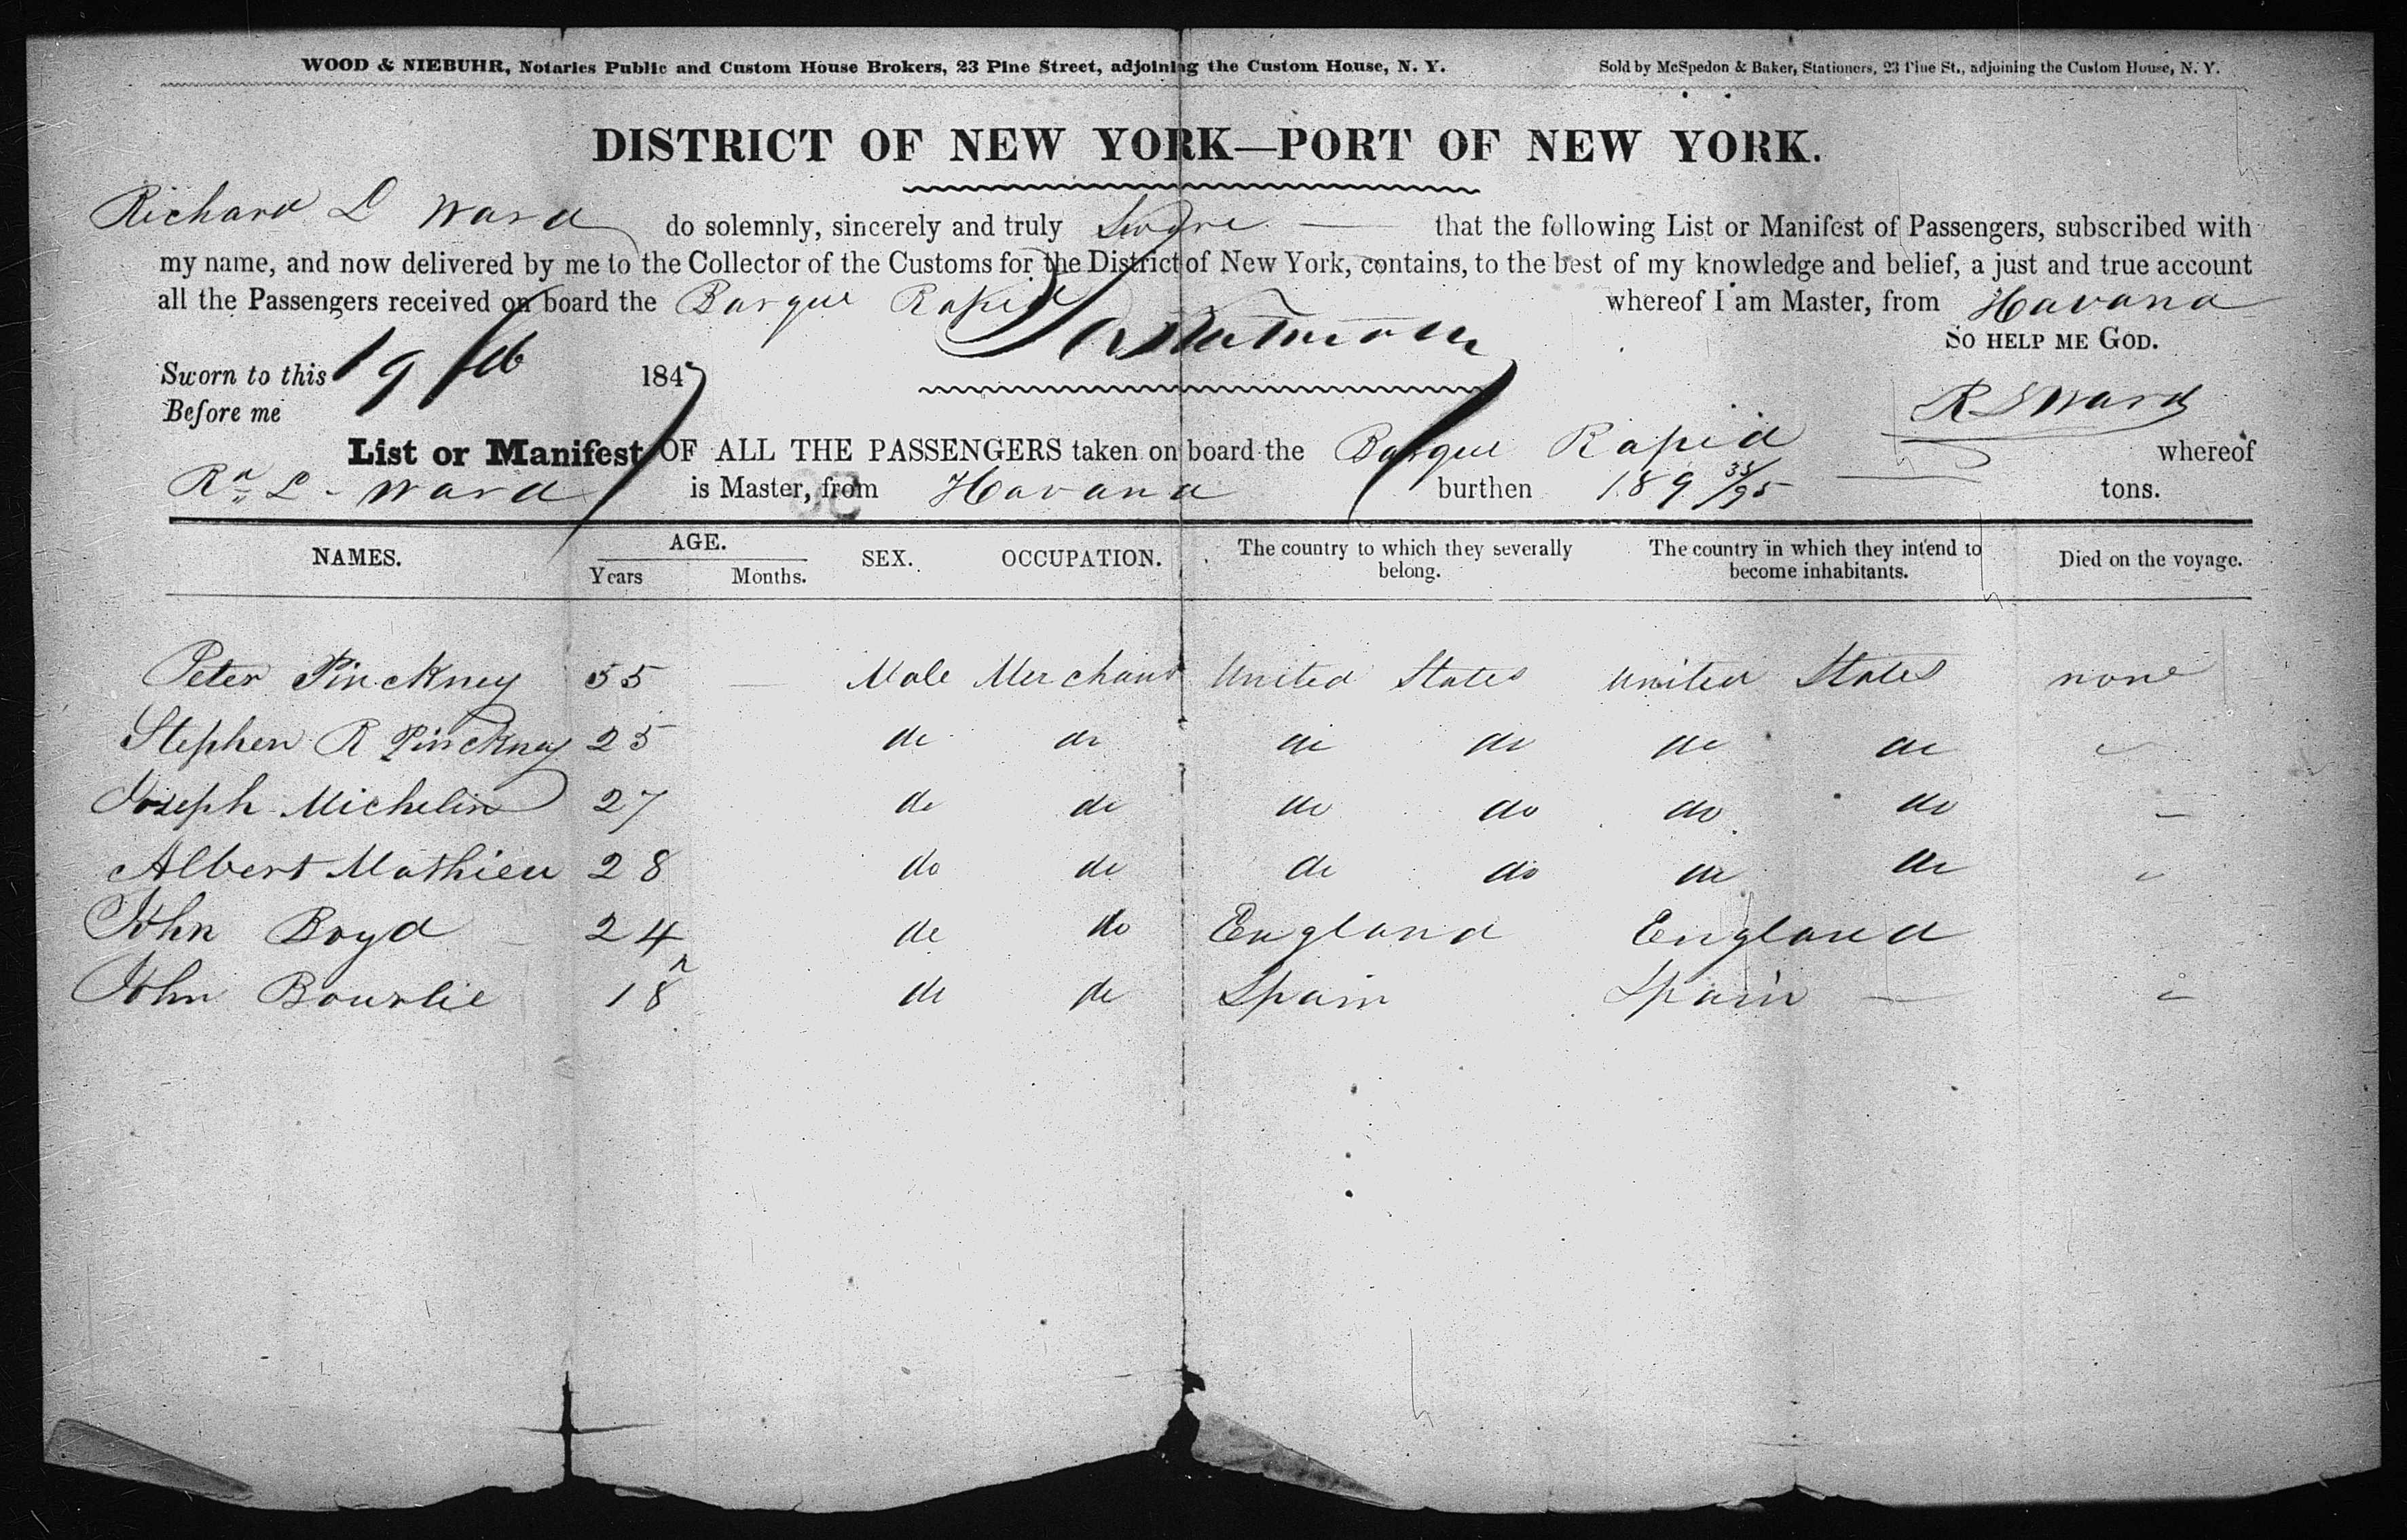 WOOD & NIEBUHR, Notaries Public and Custom House Brokers, 23 Pine Street, adjoining the Custom House, N. Y. Sold by McSpedon & Baker, Stationers, 23 Pine St., adjoining the Custom House, N. Y.
DISTRICT OF NEW YORK—PORT OF NEW YORK.
Richard L Ward do solemnly, sincerely and truly that the following List or Manifest of Passengers, subscribed with
my name, and now delivered by me to the Collector of the Customs for the District of New York, contains, to the best of my knowledge and belief, a just and true account
all the Passengers received on board the Barque Rapid whereof I am Master, from Havana
SO HELP ME GOD.
Sworn to this 19 feb 1847
Before me R L Ward
List or Manifest OF ALL THE PASSENGERS taken on board the Barque Rapid whereof
Rd L. Ward is Master, from Havana burthen 189 35/95 tons.
NAMES. AGE. SEX. OCCUPATION. The country to which they severally belong. The country in which they intend to become inhabitants. Died on the voyage.
Years Months.
Peter Pinckney 55 — Male Merchant United States United States none
Stephen R Pinckney 25 do do do do do do
Joseph Michelin 27 do do do do do do —
Albert Mathieu 28 do do do do do do
John Boyd 24 do do England England
John Bourlie 18 do do Spain Spain —